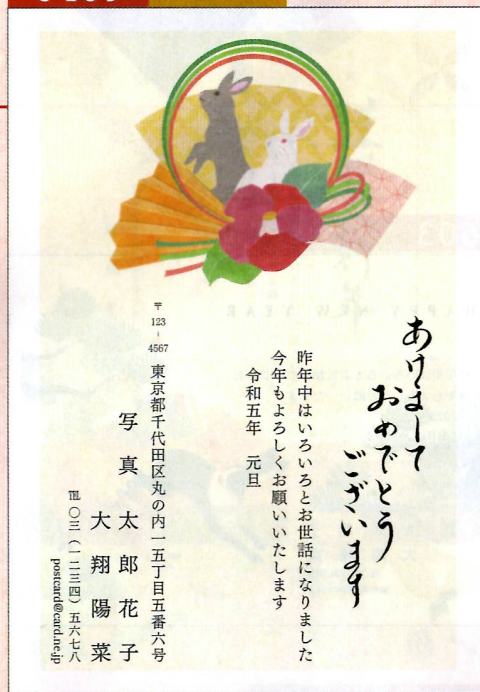 あけまして
おめでとう
ございます
昨年中はいろいろとお世話になりました
今年もよろしくお願いいたします
令和五年 元旦
〒123-4567 東京都千代田区丸の内一五丁目五番六号
写真 太郎花子
大翔陽菜
℡ 〇三(一二三四)五六七八
postcard@card.ne.jp